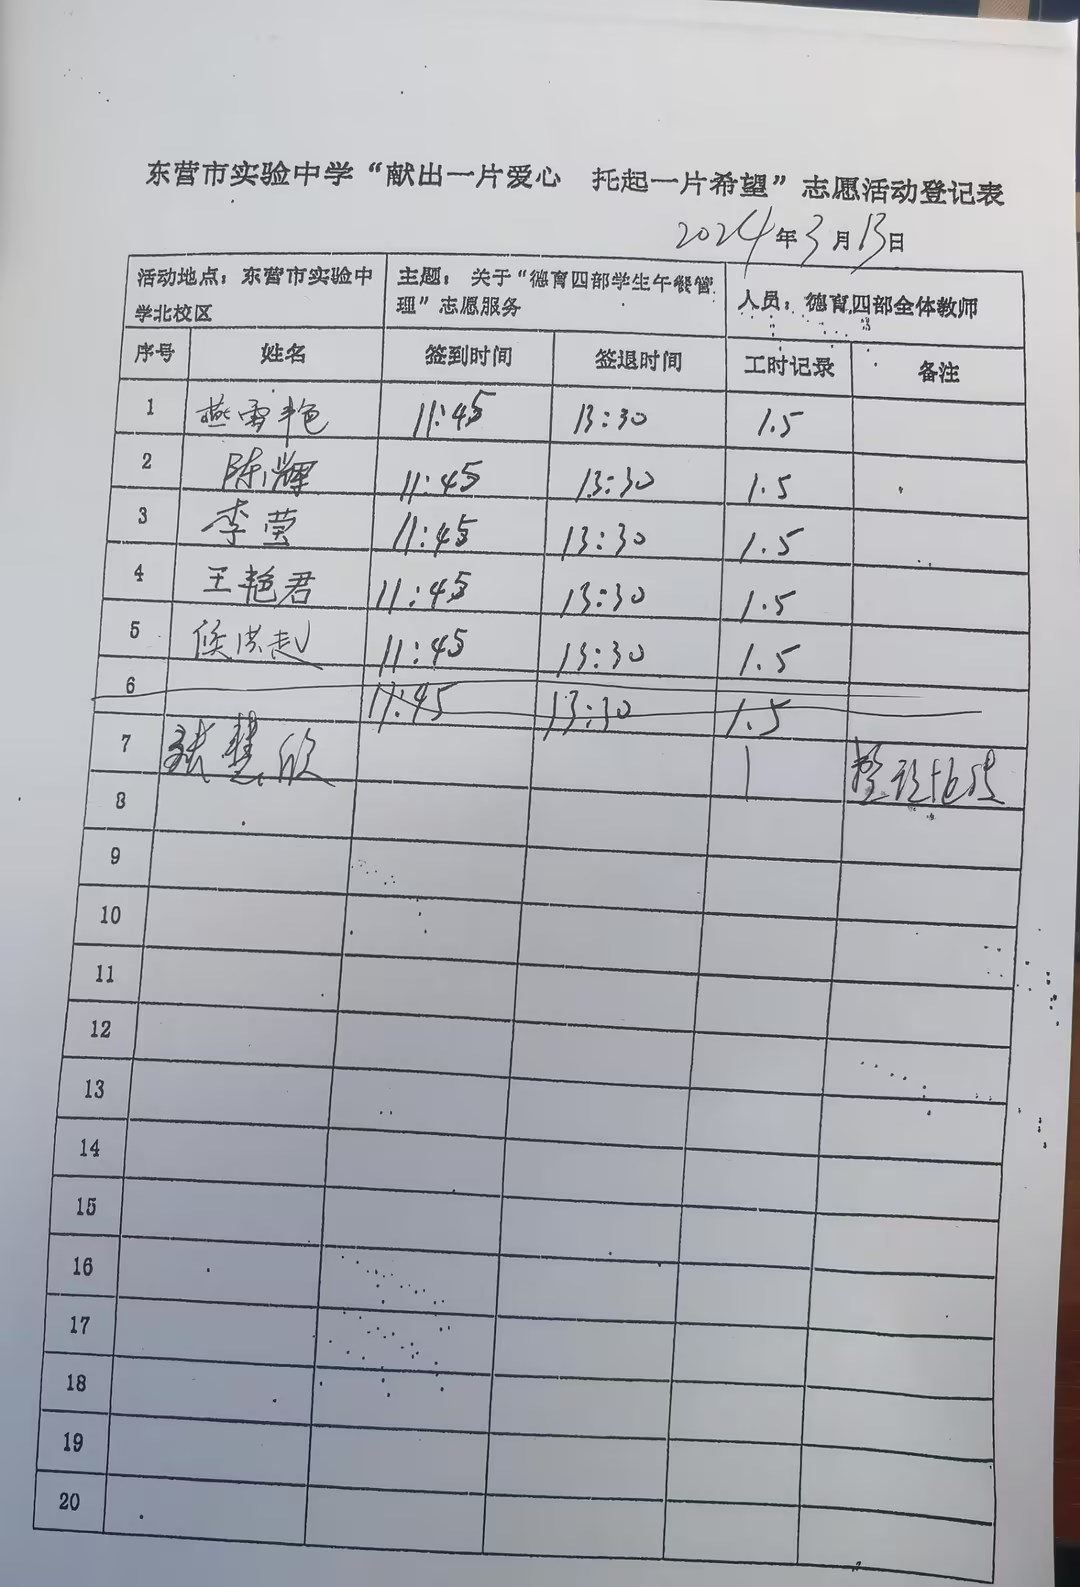 东营市实验中学“献出一片爱心 托起一片希望”志愿活动登记表
2024年3月13日
活动地点：东营市实验中学北校区 主题：关于“德育四部学生午餐管理”志愿服务 人员：德育四部全体教师
序号 姓名 签到时间 签退时间 工时记录 备注
1 燕雪艳 11:45 13:30 1.5
2 陈辉 11:45 13:30 1.5
3 李莹 11:45 13:30 1.5
4 王艳君 11:45 13:30 1.5
5 侯洪赵 11:45 13:30 1.5
6 11:45 13:30 1.5
7 张慧欣 1 整理
8
9
10
11
12
13
14
15
16
17
18
19
20